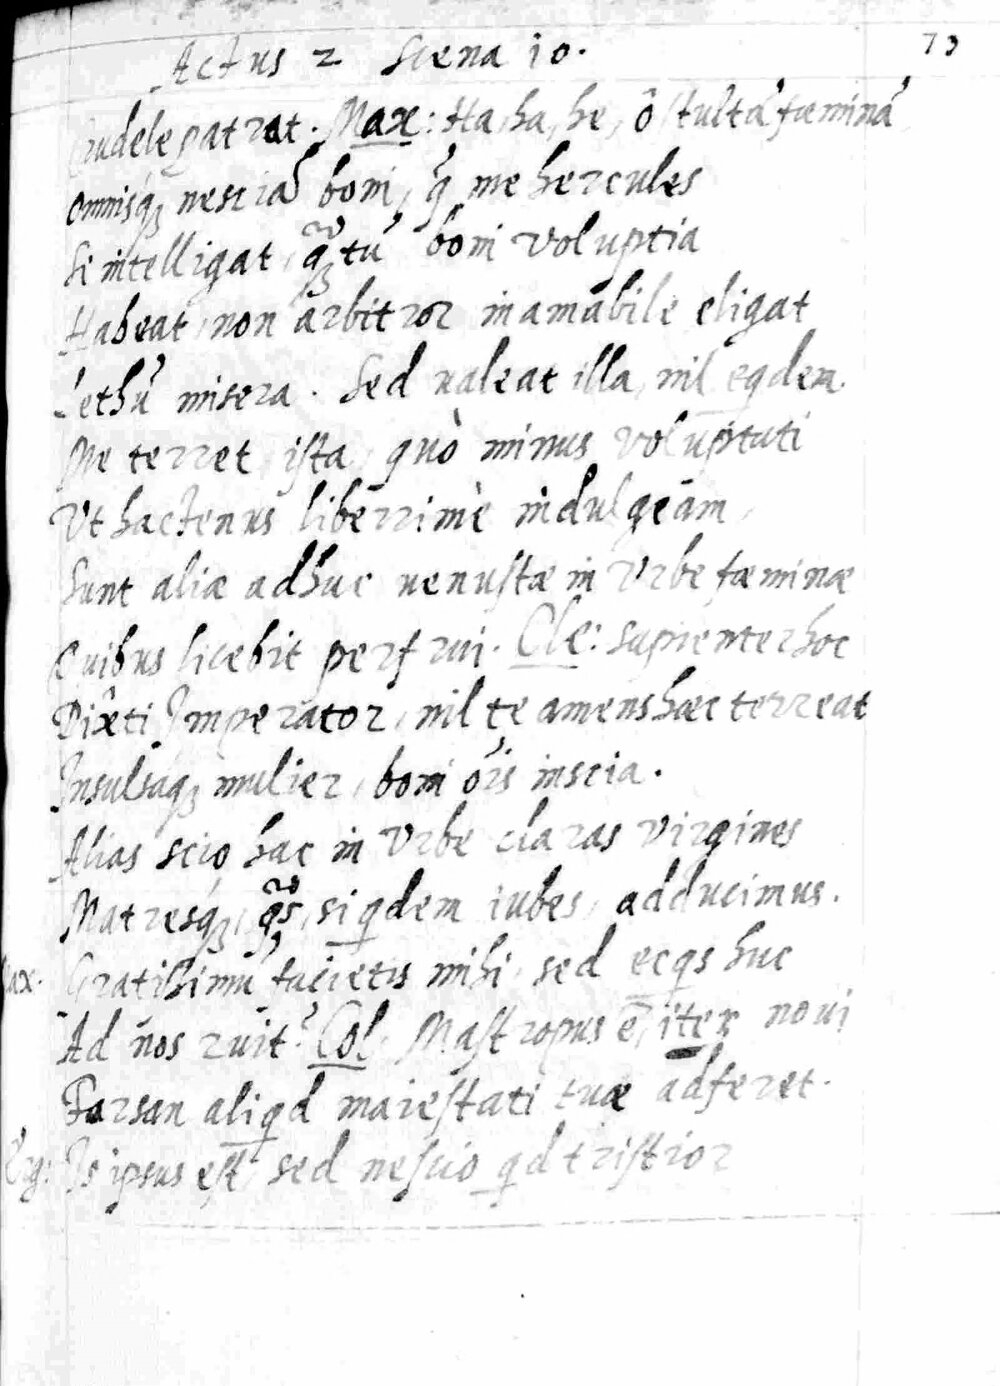 Actus 2 Scena 10.
73
Crudele patrat. Max: Ha, ha, he, ô stultā fœminā
Omnisq́ꝫ nesciā boni, q̃ me hercules
Si intelligat, q̃ꝫtū boni voluptia
Habeat, non arbitror inamabile eligat
Lethū misera. Sed valeat illa, nil eqdem
Me terret ista, quò minus voluptati
Vt hactenus liberrimè indulgeam,
Sunt aliæ adhuc venustæ in Vrbe fœminæ
Quibus licebit perfrui. Cle: Sapienter hoc
Dixti Imperator, nil te amens hæc terreat
Insulsaq́ꝫ mulier, boni oı̃s inscia.
Alias scio hac in Vrbe claras virgines
Matresq́ꝫ, q̃s, siqdem iubes, adducimus.
Max. Gratissimū facietis mihi, sed ecqs huc
Ad ños ruit? Col. Mastropus ē, iter novi
Forsan aliqd maiestati tuæ adferet.
Erg: Is ipsus est, sed nescio qd tristior